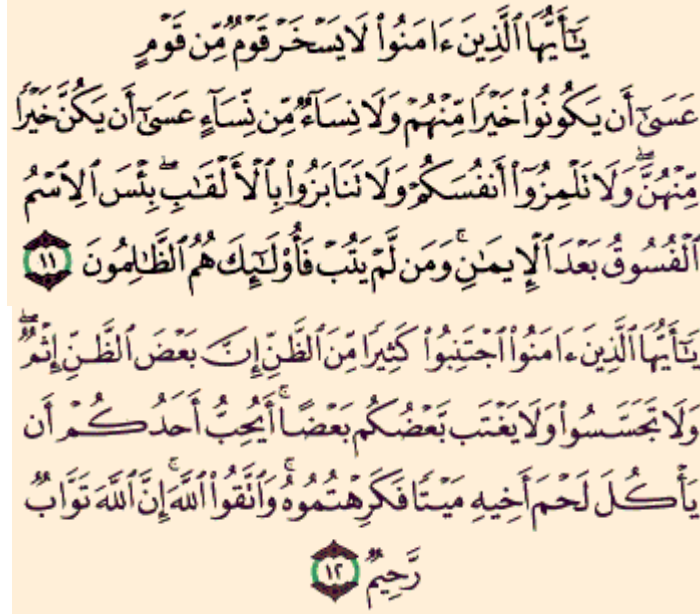 يَٰٓأَيُّهَا ٱلَّذِينَ ءَامَنُوا۟ لَا يَسْخَرْ قَوْمٌ مِّن قَوْمٍ
عَسَىٰٓ أَن يَكُونُوا۟ خَيْرًا مِّنْهُمْ وَلَا نِسَآءٌ مِّن نِّسَآءٍ عَسَىٰٓ أَن يَكُنَّ خَيْرًا
مِّنْهُنَّ ۖ وَلَا تَلْمِزُوٓا۟ أَنفُسَكُمْ وَلَا تَنَابَزُوا۟ بِٱلْأَلْقَٰبِ ۖ بِئْسَ ٱلِٱسْمُ
ٱلْفُسُوقُ بَعْدَ ٱلْإِيمَٰنِ ۚ وَمَن لَّمْ يَتُبْ فَأُو۟لَٰٓئِكَ هُمُ ٱلظَّٰلِمُونَ ١١
يَٰٓأَيُّهَا ٱلَّذِينَ ءَامَنُوا۟ ٱجْتَنِبُوا۟ كَثِيرًا مِّنَ ٱلظَّنِّ إِنَّ بَعْضَ ٱلظَّنِّ إِثْمٌ ۖ
وَلَا تَجَسَّسُوا۟ وَلَا يَغْتَب بَّعْضُكُم بَعْضًا ۚ أَيُحِبُّ أَحَدُكُمْ أَن
يَأْكُلَ لَحْمَ أَخِيهِ مَيْتًا فَكَرِهْتُمُوهُ ۚ وَٱتَّقُوا۟ ٱللَّهَ ۚ إِنَّ ٱللَّهَ تَوَّابٌ
رَّحِيمٌ ١٢